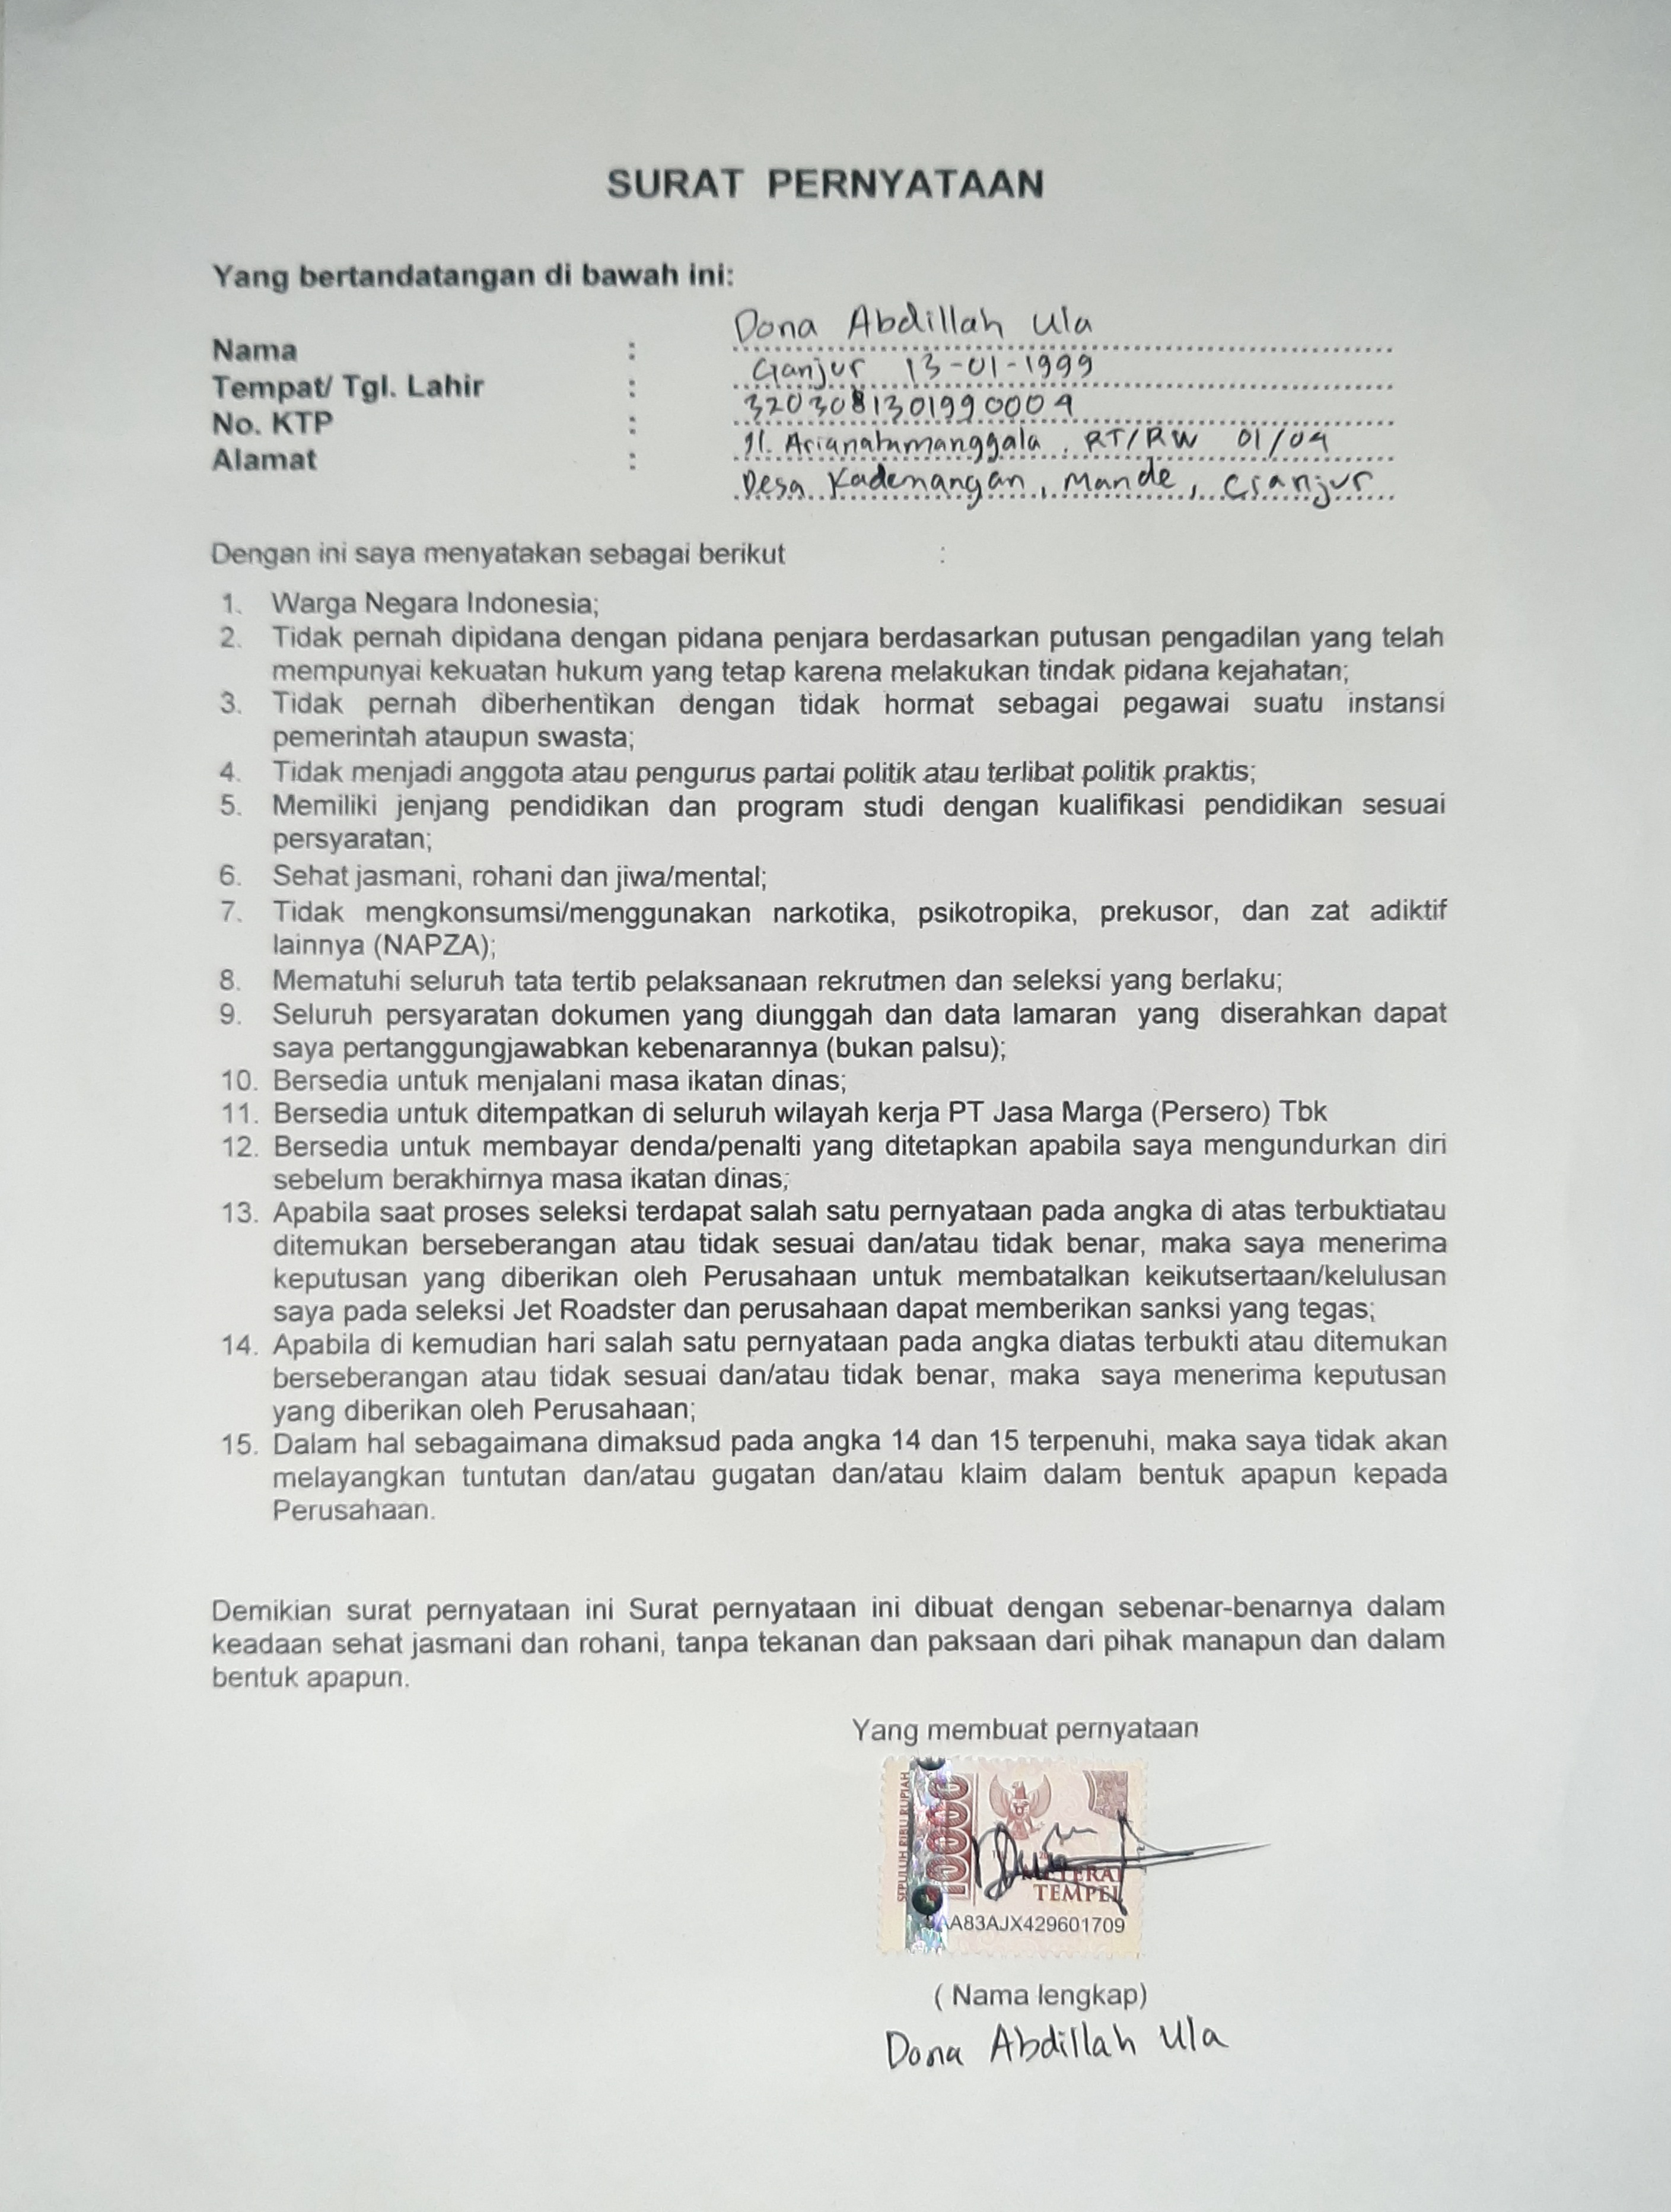 SURAT PERNYATAAN
Yang bertandatangan di bawah ini:
Nama : Dona Abdillah Ula
Tempat/ Tgl. Lahir : Cianjur 13-01-1999
No. KTP : 3203081301990004
Alamat : Jl. Arianatamanggala, RT/RW 01/04
Desa Kademangan, Mande, Cianjur
Dengan ini saya menyatakan sebagai berikut :
1. Warga Negara Indonesia;
2. Tidak pernah dipidana dengan pidana penjara berdasarkan putusan pengadilan yang telah
mempunyai kekuatan hukum yang tetap karena melakukan tindak pidana kejahatan;
3. Tidak pernah diberhentikan dengan tidak hormat sebagai pegawai suatu instansi
pemerintah ataupun swasta;
4. Tidak menjadi anggota atau pengurus partai politik atau terlibat politik praktis;
5. Memiliki jenjang pendidikan dan program studi dengan kualifikasi pendidikan sesuai
persyaratan;
6. Sehat jasmani, rohani dan jiwa/mental;
7. Tidak mengkonsumsi/menggunakan narkotika, psikotropika, prekusor, dan zat adiktif
lainnya (NAPZA);
8. Mematuhi seluruh tata tertib pelaksanaan rekrutmen dan seleksi yang berlaku;
9. Seluruh persyaratan dokumen yang diunggah dan data lamaran yang diserahkan dapat
saya pertanggungjawabkan kebenarannya (bukan palsu);
10. Bersedia untuk menjalani masa ikatan dinas;
11. Bersedia untuk ditempatkan di seluruh wilayah kerja PT Jasa Marga (Persero) Tbk
12. Bersedia untuk membayar denda/penalti yang ditetapkan apabila saya mengundurkan diri
sebelum berakhirnya masa ikatan dinas;
13. Apabila saat proses seleksi terdapat salah satu pernyataan pada angka di atas terbuktiatau
ditemukan berseberangan atau tidak sesuai dan/atau tidak benar, maka saya menerima
keputusan yang diberikan oleh Perusahaan untuk membatalkan keikutsertaan/kelulusan
saya pada seleksi Jet Roadster dan perusahaan dapat memberikan sanksi yang tegas;
14. Apabila di kemudian hari salah satu pernyataan pada angka diatas terbukti atau ditemukan
berseberangan atau tidak sesuai dan/atau tidak benar, maka saya menerima keputusan
yang diberikan oleh Perusahaan;
15. Dalam hal sebagaimana dimaksud pada angka 14 dan 15 terpenuhi, maka saya tidak akan
melayangkan tuntutan dan/atau gugatan dan/atau klaim dalam bentuk apapun kepada
Perusahaan.
Demikian surat pernyataan ini Surat pernyataan ini dibuat dengan sebenar-benarnya dalam
keadaan sehat jasmani dan rohani, tanpa tekanan dan paksaan dari pihak manapun dan dalam
bentuk apapun.
Yang membuat pernyataan
SEPULUH RIBU RUPIAH
10000
TEMPEL
AA83AJX429601709
( Nama lengkap)
Dona Abdillah Ula